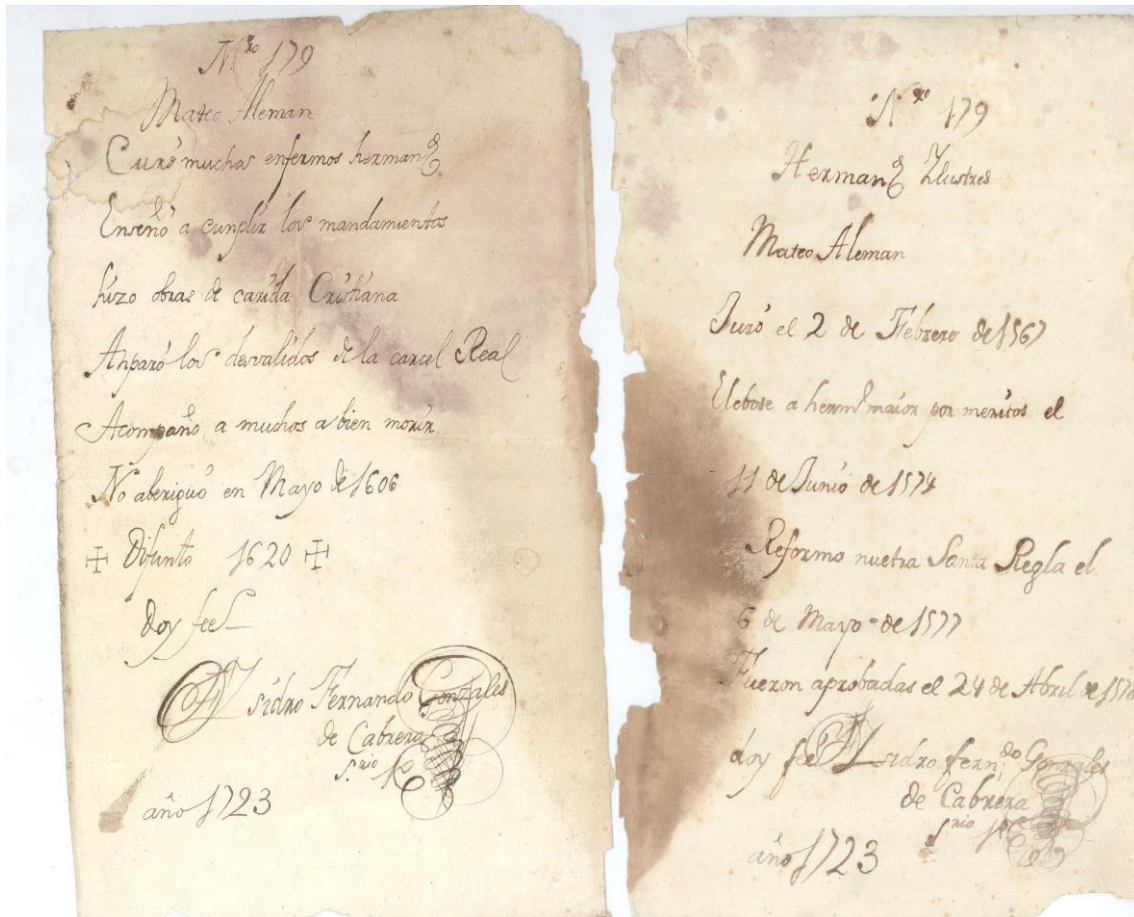 N.ro 179
Mateo Aleman
Curó muchos enfermos herman.s
Enseño a cunplir los mandamientos
hizo obras de carida Cristiana
Anparó los desvalidos de la carcel Real
Acompaño a muchos a bien morir
No aberiguo en Mayo de 1606
✠ Difunto 1620 ✠
doy fee
Isidro Fernando Gonzales
de Cabrera
S.rio
año 1723
N.ro 179
Herman.s Ylustres
Mateo Aleman
Juró el 2 de Febrero de 1567
Elebose a herm.o maior por meritos el
11 de Junio de 1574
Reformo nuetra Santa Regla el
6 de Mayo de 1577
Fueron aprobadas el 24 de Abril de
doy fee Isidro fern.do Gonzales
de Cabrera
S.rio
año 1723